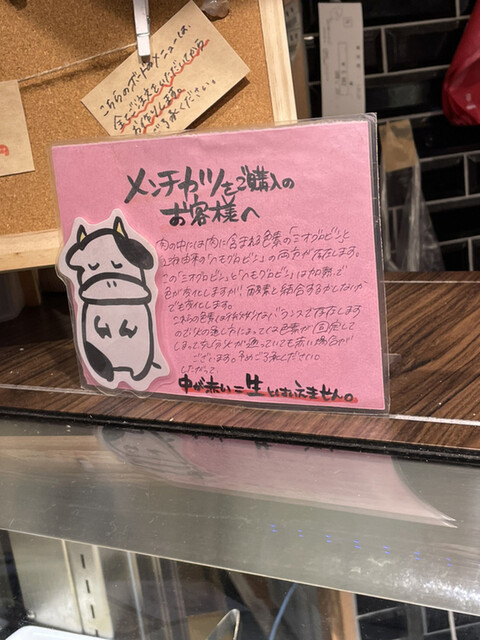 こちらのボードメニューは、
全てご注文をいただいてから
お作りします。
ご了承ください。
メンチカツをご購入の
お客様へ
肉の中には肉に含まれる色素の「ミオグロビン」と
血液由来の「ヘモグロビン」の両方が存在します。
この「ミオグロビン」と「ヘモグロビン」は加熱で
色が変化しますが、酸素と結合するかしないか
でも変化します。
これらの色素は
バランスで存在します
ので火の通し方によっては色素が固定して
しまってちゃんと火が通っていても赤い場合が
ございます。予めご了承ください。
したがって
中が赤い=生とはいえません。